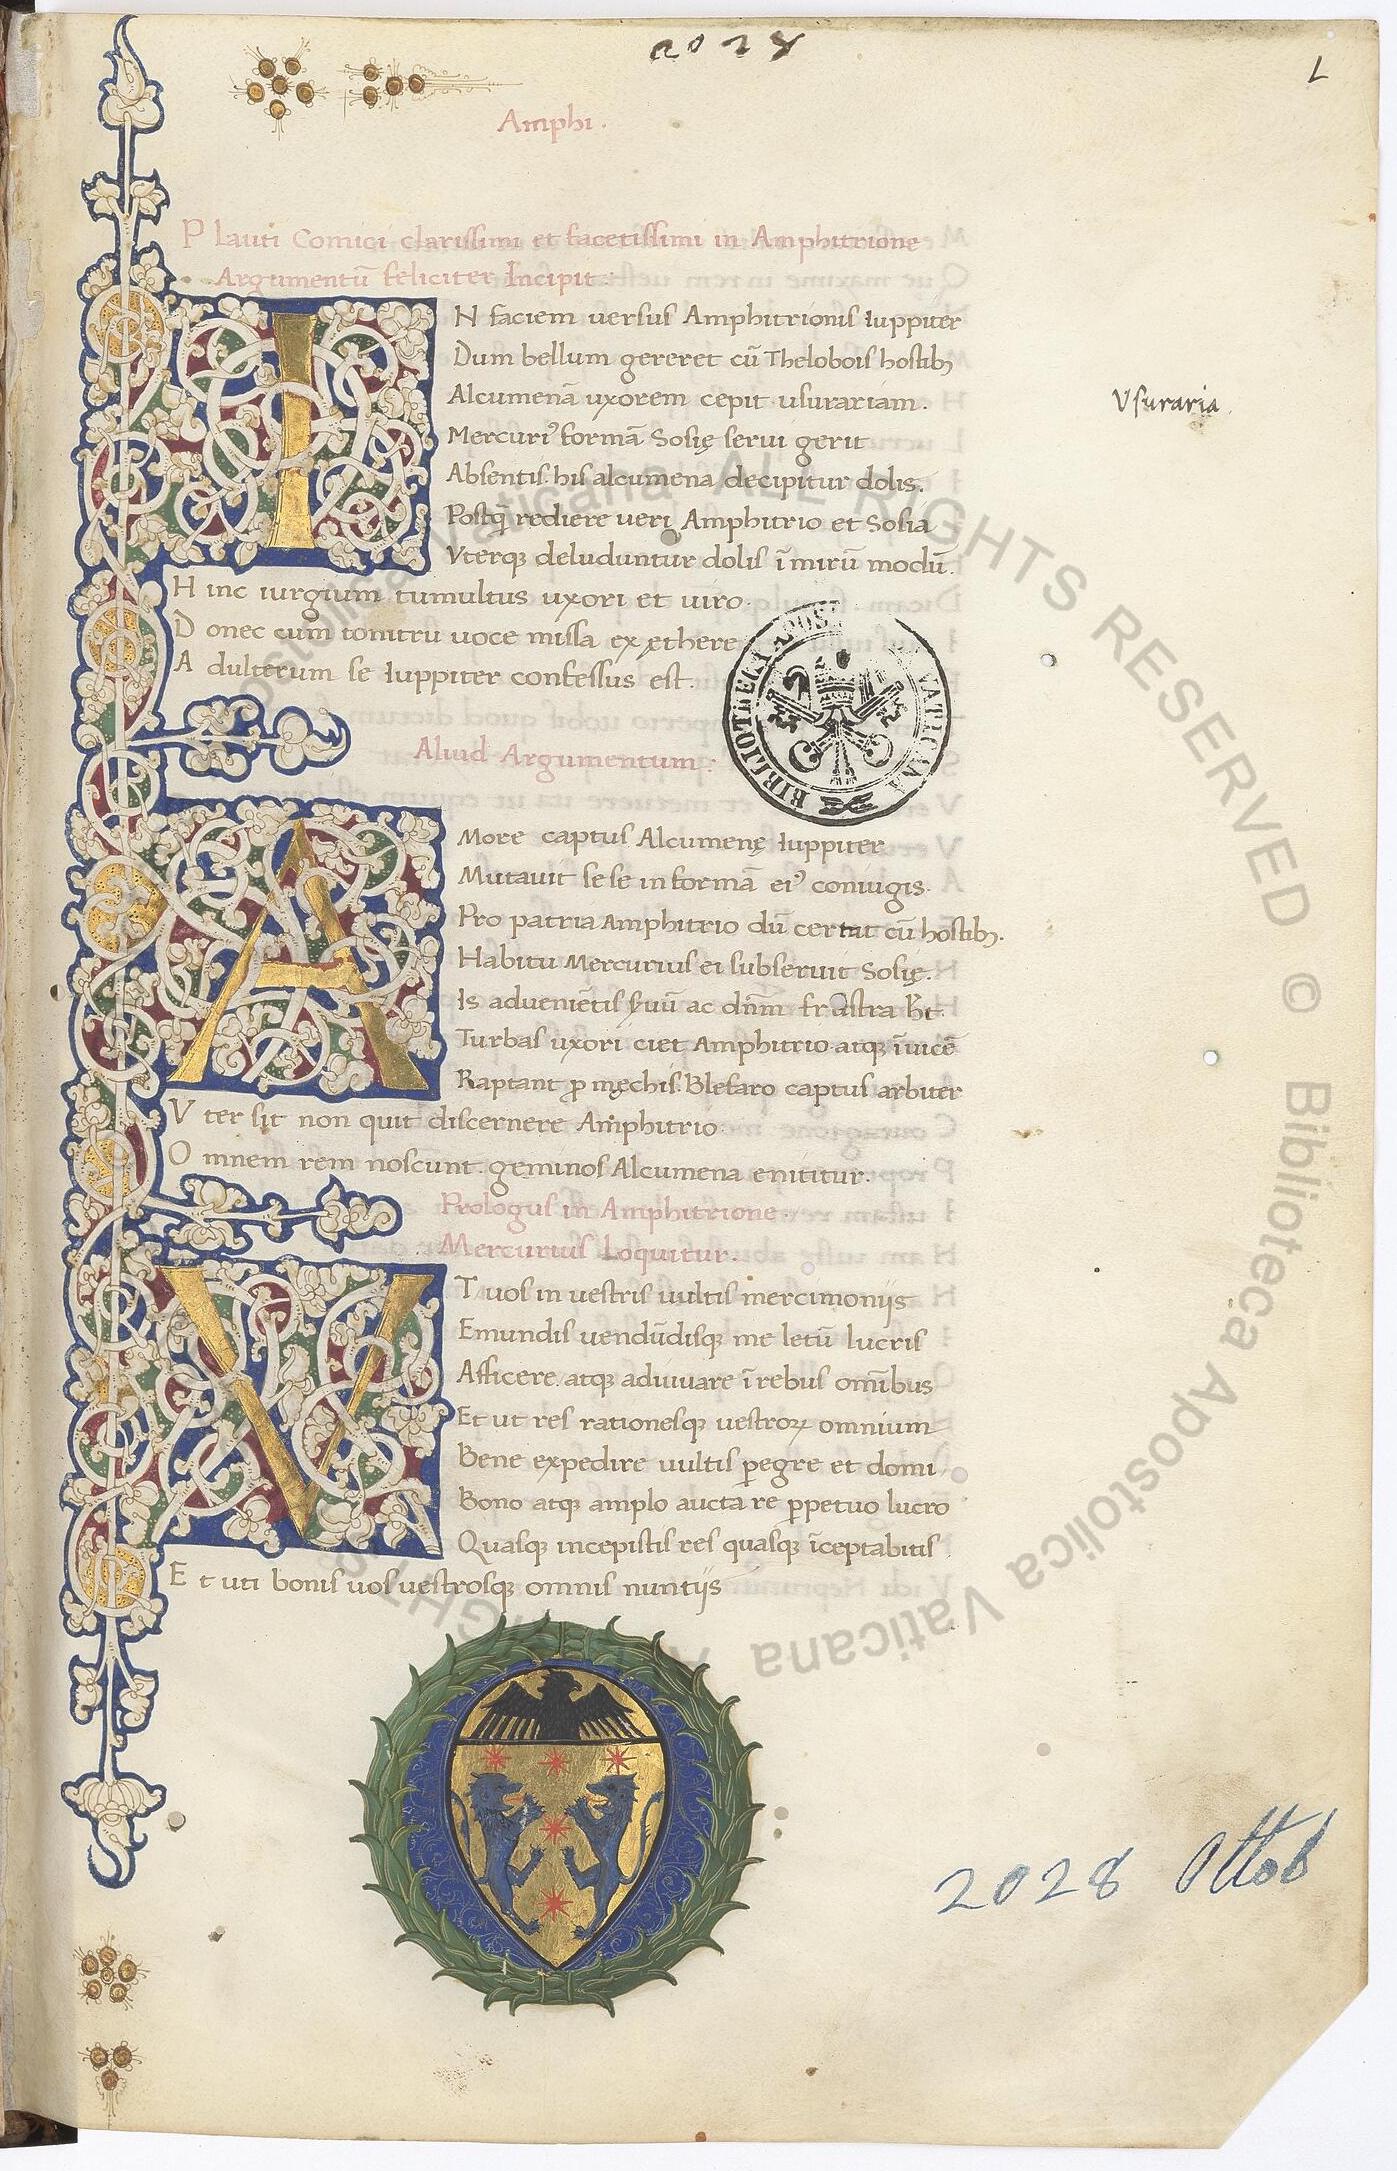 2028
1
Amphi.
Plauti Comici clarissimi et facetissimi in Amphitrione
Argumentū feliciter Incipit:
IN faciem uersus Amphitrionis Iuppiter
Dum bellum gereret cū Thelobois hostibꝫ
Alcumenā uxorem cepit usurariam.
Usuraria.
Mercuriꝰ formā Sosię serui gerit
Absentis. his alcumena decipitur dolis.
Postqꝫ rediere ueri Amphitrio et Sosia
Vterqꝫ deluduntur dolis ī mirū modū.
Hinc iurgium tumultus uxori et uiro.
Donec cum tonitru uoce missa ex ęthere
Adulterum se Iuppiter confessus est.
BIBLIOTHECA APOST VATICANA
Aliud Argumentum:
AMore captus Alcumenę Iuppiter
Mutauit sese in formā eiꝰ coniugis.
Pro patria Amphitrio dū certat cū hostibꝫ.
Habitu Mercurius ei subseruit Sosię.
Is adueniētis ẜuū ac dnm̄ frustra ħt.
Turbas uxori ciet Amphitrio. atqꝫ īuicē
Raptant ꝓ męchis. Blefaro captus arbiter
Vter sit non quit discernere Amphitrio
Omnem rem noscunt. geminos Alcumena enititur.
Prologus in Amphitrione.
Mercurius Loquitur.
VT uos in uestris uultis mercimoniis
Emundis uendūdisqꝫ me letū lucris
Afficere atqꝫ adiuuare ī rebus omībus
Et ut res rationesqꝫ uestroꝝ omnium
Bene expedire uultis ꝑegre et domi.
Bono atqꝫ amplo aucta re ꝑpetuo lucro
Quasqꝫ incepistis res quasqꝫ īceptabitis
Et uti bonis uos uestrosqꝫ omnis nuntiis
2028 Ottob
Apostolica Vaticana ALL RIGHTS RESERVED © Biblioteca Apostolica Vaticana